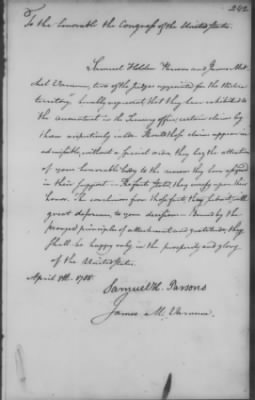 242
To the honorable the Congress of the United States.
Samuel Holden Parsons and James Mit-
chel Varnum, two of the Judges appointed for the Western
territory humbly represent, that they have exhibited to
the accountant in the Treasury office, certain claims by
them respectively made. Should those claims appear in-
admissible, without a special order, they beg the attention
of your honorable body to the reasons they have assigned
in their support. The facts stated, they verify upon their
honor. The conclusions from those facts, they submit, with
great deference, to your decision. Bound by the
strongest principles of attachment and gratitude, they
shall be happy only in the prosperity and glory
of the United States.
April 8th. 1788.
Samuel H. Parsons
James M. Varnum.